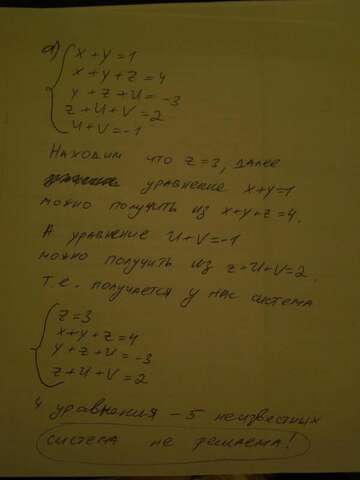 а) x+y=1
x+y+z=4
y+z+u=-3
z+u+v=2
u+v=-1
Находим что z=3, далее
уравнение x+y=1
можно получить из x+y+z=4.
А уравнение u+v=-1
можно получить из z+u+v=2.
т.е. получается у нас система
z=3
x+y+z=4
y+z+u=-3
z+u+v=2
4 уравнения - 5 неизвестных
система не решаема!